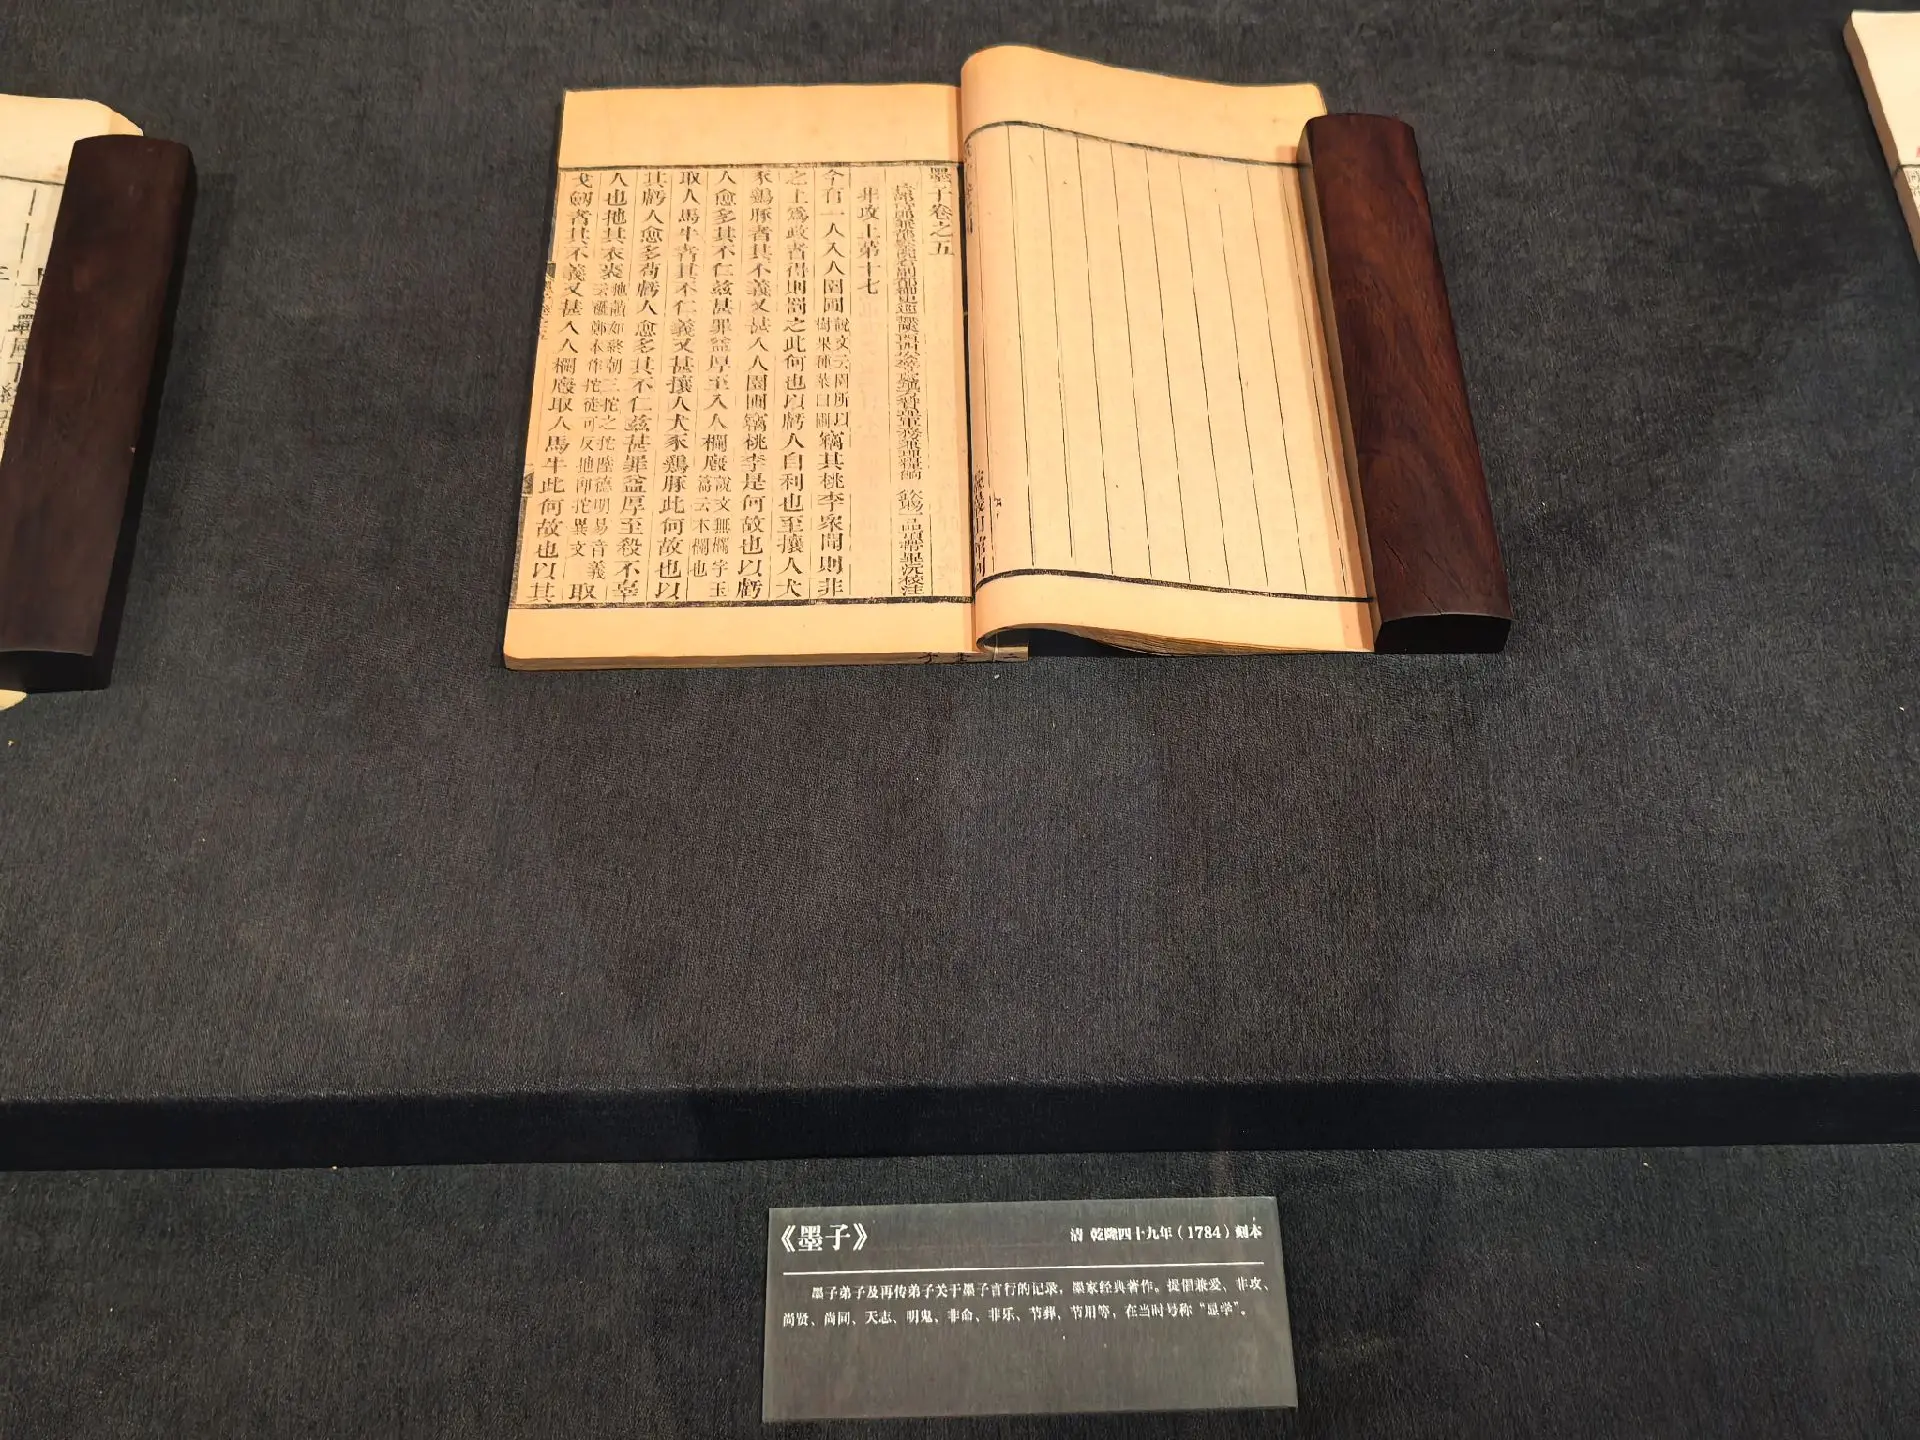 墨子卷之五
非攻上第十七
今有一人入人園圃說文云園所以樹果種菜曰圃竊其桃李衆聞則非
之上爲政者得則罰之此何也以虧人自利也至攘人犬
豕雞豚者其不義又甚入人園圃竊桃李是何故也以虧
人愈多其不仁兹甚罪益厚至入人欄廄說文無欄字玉篇云木欄也
取人馬牛者其不仁義又甚攘人犬豕雞豚此何故也以
其虧人愈多苟虧人愈多其不仁兹甚罪益厚至殺不辜
人也扡其衣裘陸德明易音義云褫鄭本作拕徒可反扡卽拕異文取
戈劒者其不義又甚入人欄廄取人馬牛此何故也以其
《墨子》
清 乾隆四十九年（1784）刻本
墨子弟子及再传弟子关于墨子言行的记录，墨家经典著作。提倡兼爱、非攻、
尚贤、尚同、天志、明鬼、非命、非乐、节葬、节用等，在当时号称“显学”。